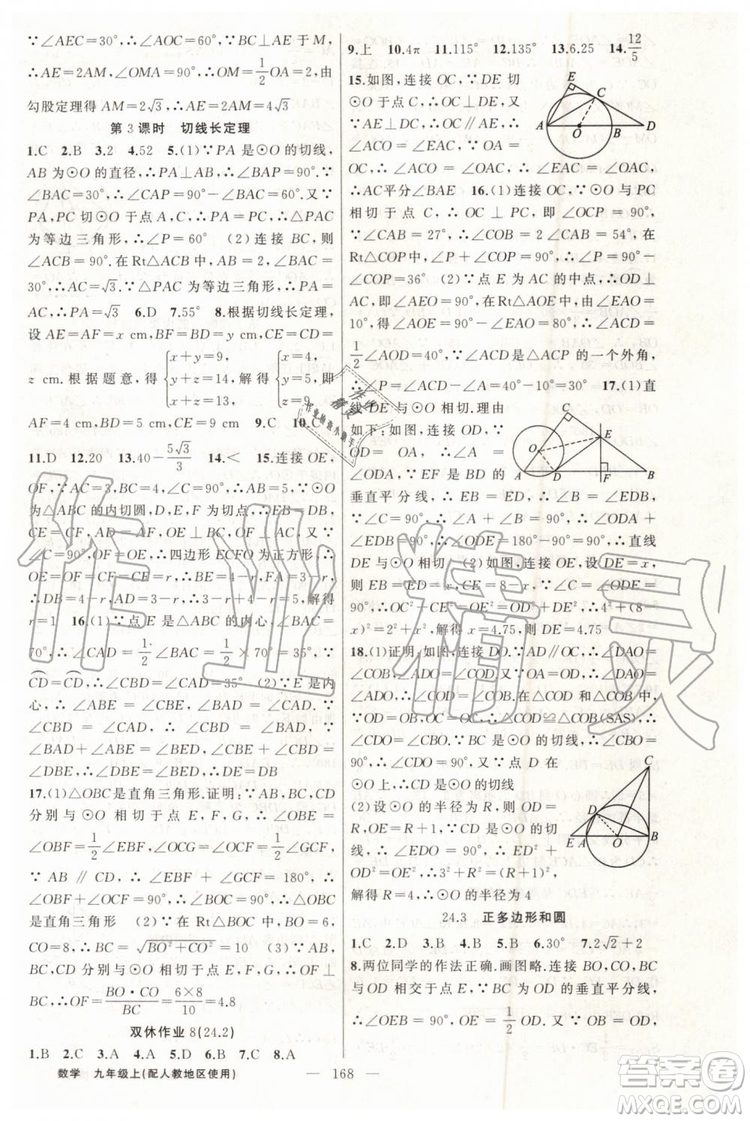 ∵∠AEC=30°,∴∠AOC=60°,∵BC⊥AE于M,∴
AE=2AM,∠OMA=90°,∴OM=1/2OA=2,由
勾股定理得AM=2√3,∴AE=2AM=4√3
第3课时 切线长定理
1.C 2.B 3.2 4.52 5.(1)∵PA是⊙O的切线,
AB为⊙O的直径,∴PA⊥AB,∴∠BAP=90°,∵
∠BAC=30°,∴∠CAP=90°-∠BAC=60°.又∵
PA,PC切⊙O于点A,C,∴PA=PC,∴△PAC
为等边三角形,∴∠P=60° (2)连接BC,则
∠ACB=90°.在Rt△ACB中,AB=2,∠BAC=
30°,∴BC=1,AC=√3.∵△PAC为等边三角形,
∴PA=AC,∴PA=√3 6.D 7.55° 8.根据切线长定理,
设AE=AF=x cm,BF=BD=y cm,CE=CD=
z cm.根据题意,得{x+y=9,y+z=14,x+z=13,解得{x=4,y=5,z=9,即
AF=4 cm,BD=5 cm,CE=9 cm 9.C 10.C
11.D 12.20 13.40-5√3/3 14.< 15.连接OE,
OF,∵AC=3,BC=4,∠C=90°,∴AB=5.∵⊙O为
△ABC的内切圆,D,E,F为切点,∴AD=AF,BD=
BE,CE=CF,OE⊥BC,OF⊥AC.又∵
∠C=90°,OF=OE,∴四边形ECFO为正方形,∴设
OE=OF=CF=CE=r,∴BE=4-r,FA=3-r,
∴BD=4-r,AD=3-r,∴3-r+4-r=5,解得
r=1 16.(1)∵点E是△ABC的内心,∠BAC=
70°,∴∠CAD=1/2∠BAC=1/2×70°=35°,∵
CD=CD,∴∠CBD=∠CAD=35° (2)∵E是内
心,∴∠ABE=∠CBE,∠BAD=∠CAD.∵
∠CBD=∠CAD,∴∠CBD=∠BAD,∵
∠BAD+∠ABE=∠BED,∠CBE+∠CBD=
∠DBE,∴∠DBE=∠BED,∴DE=DB
17.(1)△OBC是直角三角形.证明:∵AB,BC,CD
分别与⊙O相切于E,F,G,∴∠OBE=
∠OBF=1/2∠EBF,∠OCG=∠OCF=1/2∠GCF,
∵AB∥CD,∴∠EBF+∠GCF=180°,∴
∠OBF+∠OCF=90°,∴∠BOC=90°,∴△OBC是
直角三角形 (2)∵在Rt△BOC中,BO=6,
CO=8,∴BC=√(BO²+CO²)=10.∵AB,BC,CD
分别与⊙O相切于点E,F,G,∴OF⊥BC,
∴OF=BO·CO/BC=6×8/10=4.8
双休作业8(24.2)
1.B 2.C 3.A 4.D 5.B 6.A 7.C 8.A
9.上 10.4π 11.115° 12.135° 13.6.25 14.12/5
15.如图,连接OC,∵DE切
⊙O于点C,∴OC⊥DE.又
∵AE⊥DE,∴OC∥AE,
∴∠EAC=∠ACO.又∵OA=
OC,∴∠ACO=∠OAC,∴∠EAC=∠OAC,∴
AC平分∠BAE 16.(1)连接OC,∵⊙O与PC
相切于点C,∴OC⊥PC,即∠OCP=90°,∵
∠CAB=27°,∴∠COB=2∠CAB=54°.在
Rt△COP中,∠P+∠COP=90°,∴∠P=90°-
∠COP=36° (2)∵E为AC的中点,∴OD⊥
AC,即∠AEO=90°,在Rt△AOE中,由∠EAO=
10°,得∠AOE=90°-∠EAO=80°,∴∠ACD=
1/2∠AOD=40°,∵∠ACD是△ACP的一个外角,
∴∠P=∠ACD-∠A=40°-10°=30° 17.(1)直
线DE与⊙O相切.理由
如下:如图,连接OD,∵
OD=OA,∴∠A=
∠ODA,∵EF是BD的
垂直平分线,∴EB=ED,∴∠B=∠EDB,
∵∠C=90°,∴∠A+∠B=90°,∴∠ODA+
∠EDB=90°,∴∠ODE=180°-90°=90°,∴直线
DE与⊙O相切 (2)如图,连接OE,设DE=x,
则EB=ED=x,CE=8-x,∵∠C=
∠ODE=90°,∴OC²+CE²=OE²=OD²+DE²,∴4²+(8-
x)²=2²+x²,解得x=4.75,则DE=4.75
18.(1)证明:如图,连接OD.∵AD∥OC,∴∠DAO=
∠COB,∠ADO=∠COD,∵OA=OD,∴∠DAO=
∠ADO,∴∠COD=∠COB.又∵
OD=OB,OC=OC,∴△COD≌△COB(SAS),∴
∠CDO=∠CBO.∵BC是⊙O的切线,∴∠CBO=
90°,∴∠CDO=90°,∴OD⊥CD,
又∵点D在⊙O上,∴CD是⊙O的切线
(2)设⊙O的半径为R,则OD=R,
OE=R+1,∵CD是⊙O的切线,
∴∠EDO=90°,∴ED²+OD²=
OE²,∴3²+R²=(R+1)²,
解得R=4,∴⊙O的半径为4
24.3 正多边形和圆
1.C 2.D 3.B 4.B 5.B 6.30° 7.2√2+2
8.两位同学的作法正确.画图略.连接BO,CO,∵BC
与OD相互垂直平分,∴EO=ED=1/2OD,
∴∠OEB=90°,∵OE=1/2OD=1/2OB,∴在
数学 九年级上(配人教地区使用) — 168 —